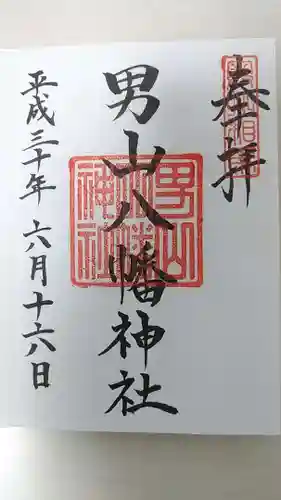 奉拝
男山八幡神社
平成三十年六月十六日
男山八幡神社